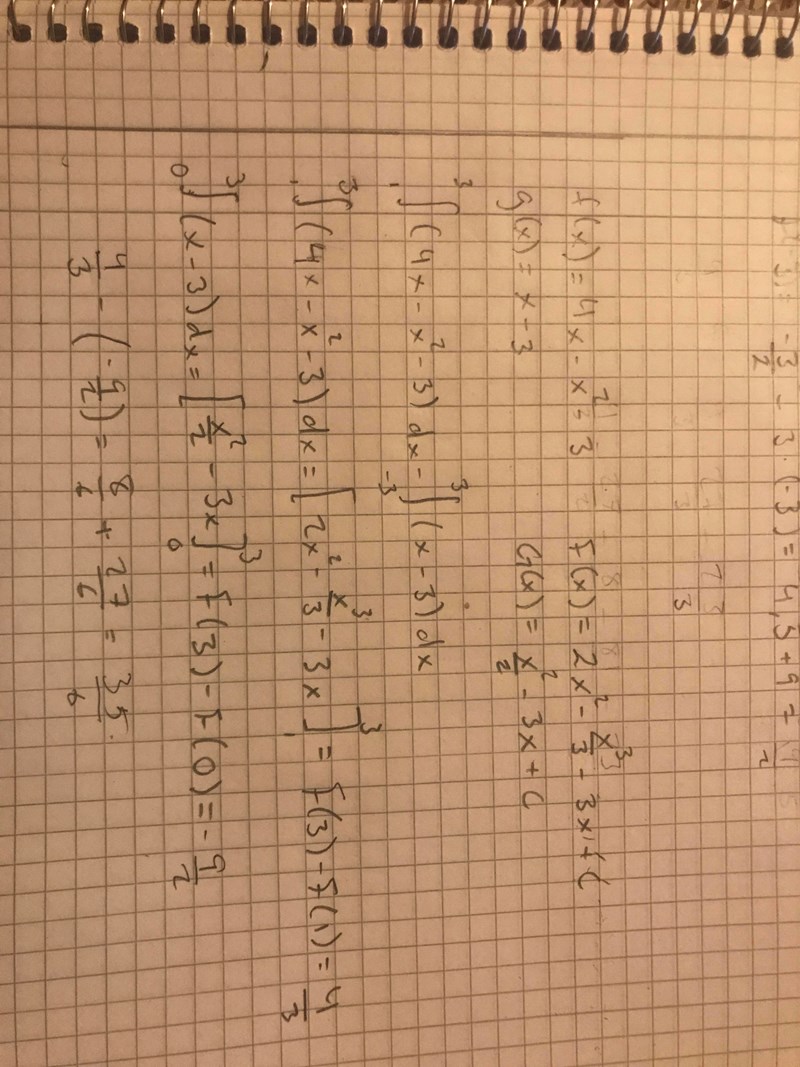 -3/2 - 3·(-3) = 4,5 + 9 =
f(x) = 4x - x² - 3   F(x) = 2x² - x³/3 - 3x + C
g(x) = x - 3   G(x) = x²/2 - 3x + C
₁∫³ (4x - x² - 3) dx - ₋₃∫³ (x - 3) dx
₁∫³ (4x - x² - 3) dx = [2x² - x³/3 - 3x]₁³ = F(3) - F(1) = 4/3
₀∫³ (x - 3) dx = [x²/2 - 3x]₀³ = F(3) - F(0) = -9/2
4/3 - (-9/2) = 8/6 + 27/6 = 35/6.